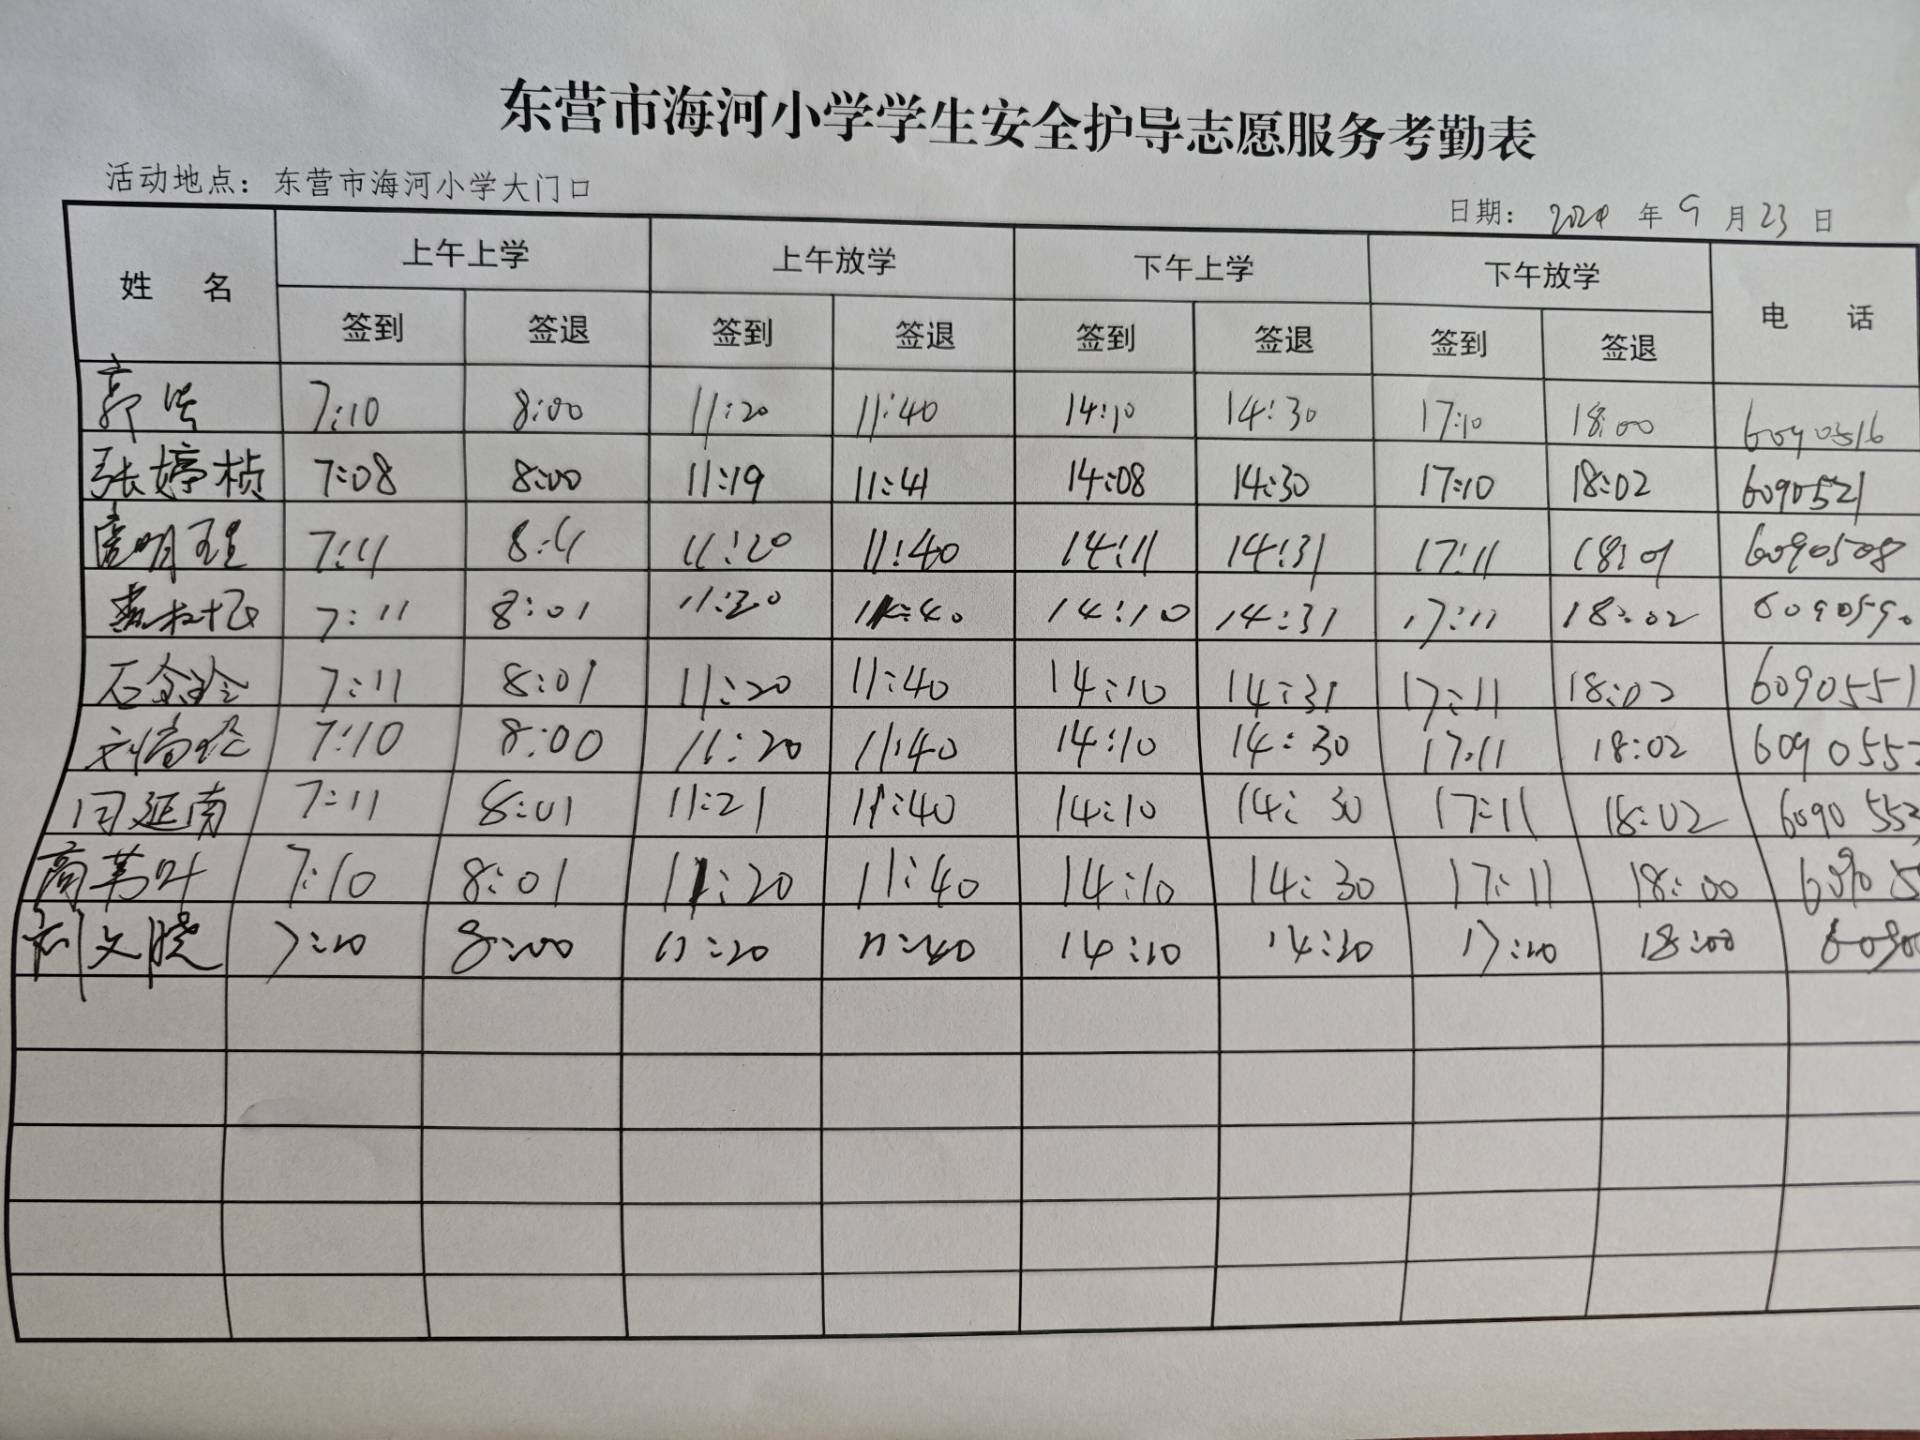 东营市海河小学学生安全护导志愿服务考勤表
活动地点：东营市海河小学大门口
日期： 2024 年 9 月 23 日
姓 名 上午上学 上午放学 下午上学 下午放学 电 话
签到 签退 签到 签退 签到 签退 签到 签退
郭 7:10 8:00 11:20 11:40 14:10 14:30 17:10 18:00 6090516
张婷桢 7:08 8:00 11:19 11:41 14:08 14:30 17:10 18:02 6090521
明 7:11 8:11 11:20 11:40 14:11 14:31 17:11 18:01 6090508
7:11 8:01 11:20 11:40 14:10 14:31 17:11 18:02 6090590
石金玲 7:11 8:01 11:20 11:40 14:10 14:31 17:11 18:02 6090551
刘 7:10 8:00 11:20 11:40 14:10 14:30 17:11 18:02 609055
闫延南 7:11 8:01 11:21 11:40 14:10 14:30 17:11 18:02 6090552
商 叶 7:10 8:01 11:20 11:40 14:10 14:30 17:11 18:00 60905
刘文晓 7:10 8:00 11:20 11:40 14:10 14:30 17:10 18:00 6090